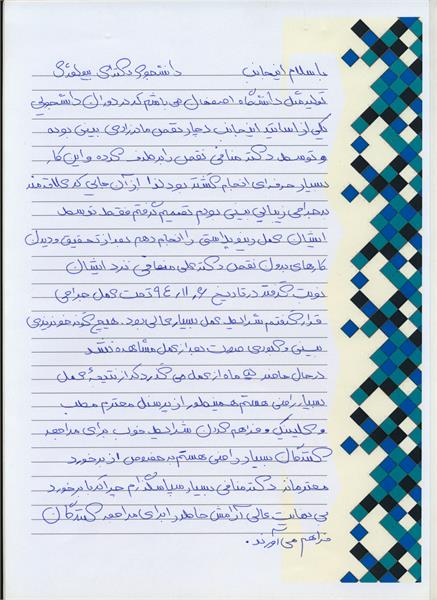 با سلام اینجانب دانشجوی دکترای بیولوژی
تولیدمثل دانشگاه اصفهان می باشم که در دوران دانشجویی
یکی از اساتید اینجانب دچار نقص مادرزادی بینی بوده
و توسط دکتر منافی نقص را برطرف کرده و این کار
بسیار حرفه ای انجام گشته بود لذا از آن جایی که علاقه مند
به جراحی زیبایی بینی بودم تصمیم گرفتم فقط توسط
ایشان عمل رینوپلاستی را انجام دهم بعد از تحقیق و دیدن
کارهای بدون نقص دکتر علی منافی نزد ایشان
نوبت گرفته در تاریخ ۹۴،۱۱،۶ تحت عمل جراحی
قرار گرفتم شرایط عمل بسیار عالی بود. هیچ گونه خونریزی
بینی و کبودی صورت بعد از عمل مشاهده نشد
در حال حاضر ماه از عمل می گذرد که از نتیجۀ عمل
بسیار راضی هستم همینطور از پرسنل محترم مطب
و کلینیک و فراهم کردن شرایط خوب برای مراجعه
کنندگان بسیار راضی هستم به خصوص از برخورد
محترمانه دکتر منافی بسیار سپاسگذارم چرا که با برخورد
بی نهایت عالی آرامش خاطر را برای مراجعه کنندگان
فراهم می آورند.